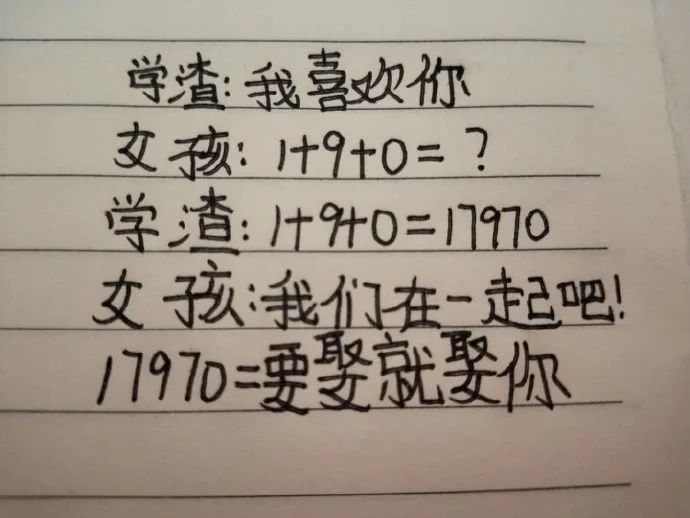 学渣:我喜欢你
女孩:1+9+0=?
学渣:1+9+0=17970
女孩:我们在一起吧!
17970=要娶就娶你